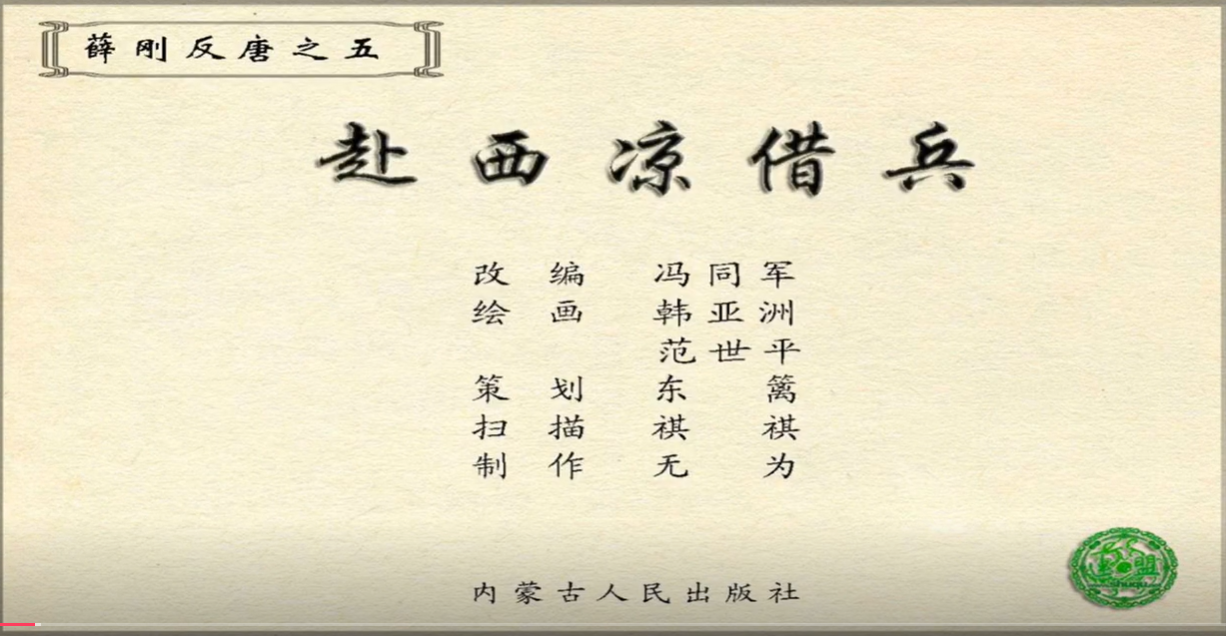 薛刚反唐之五
赴西凉借兵
改编 冯同军
绘画 韩亚洲
范世平
策划 东篱
扫描 祺祺
制作 无为
内蒙古人民出版社